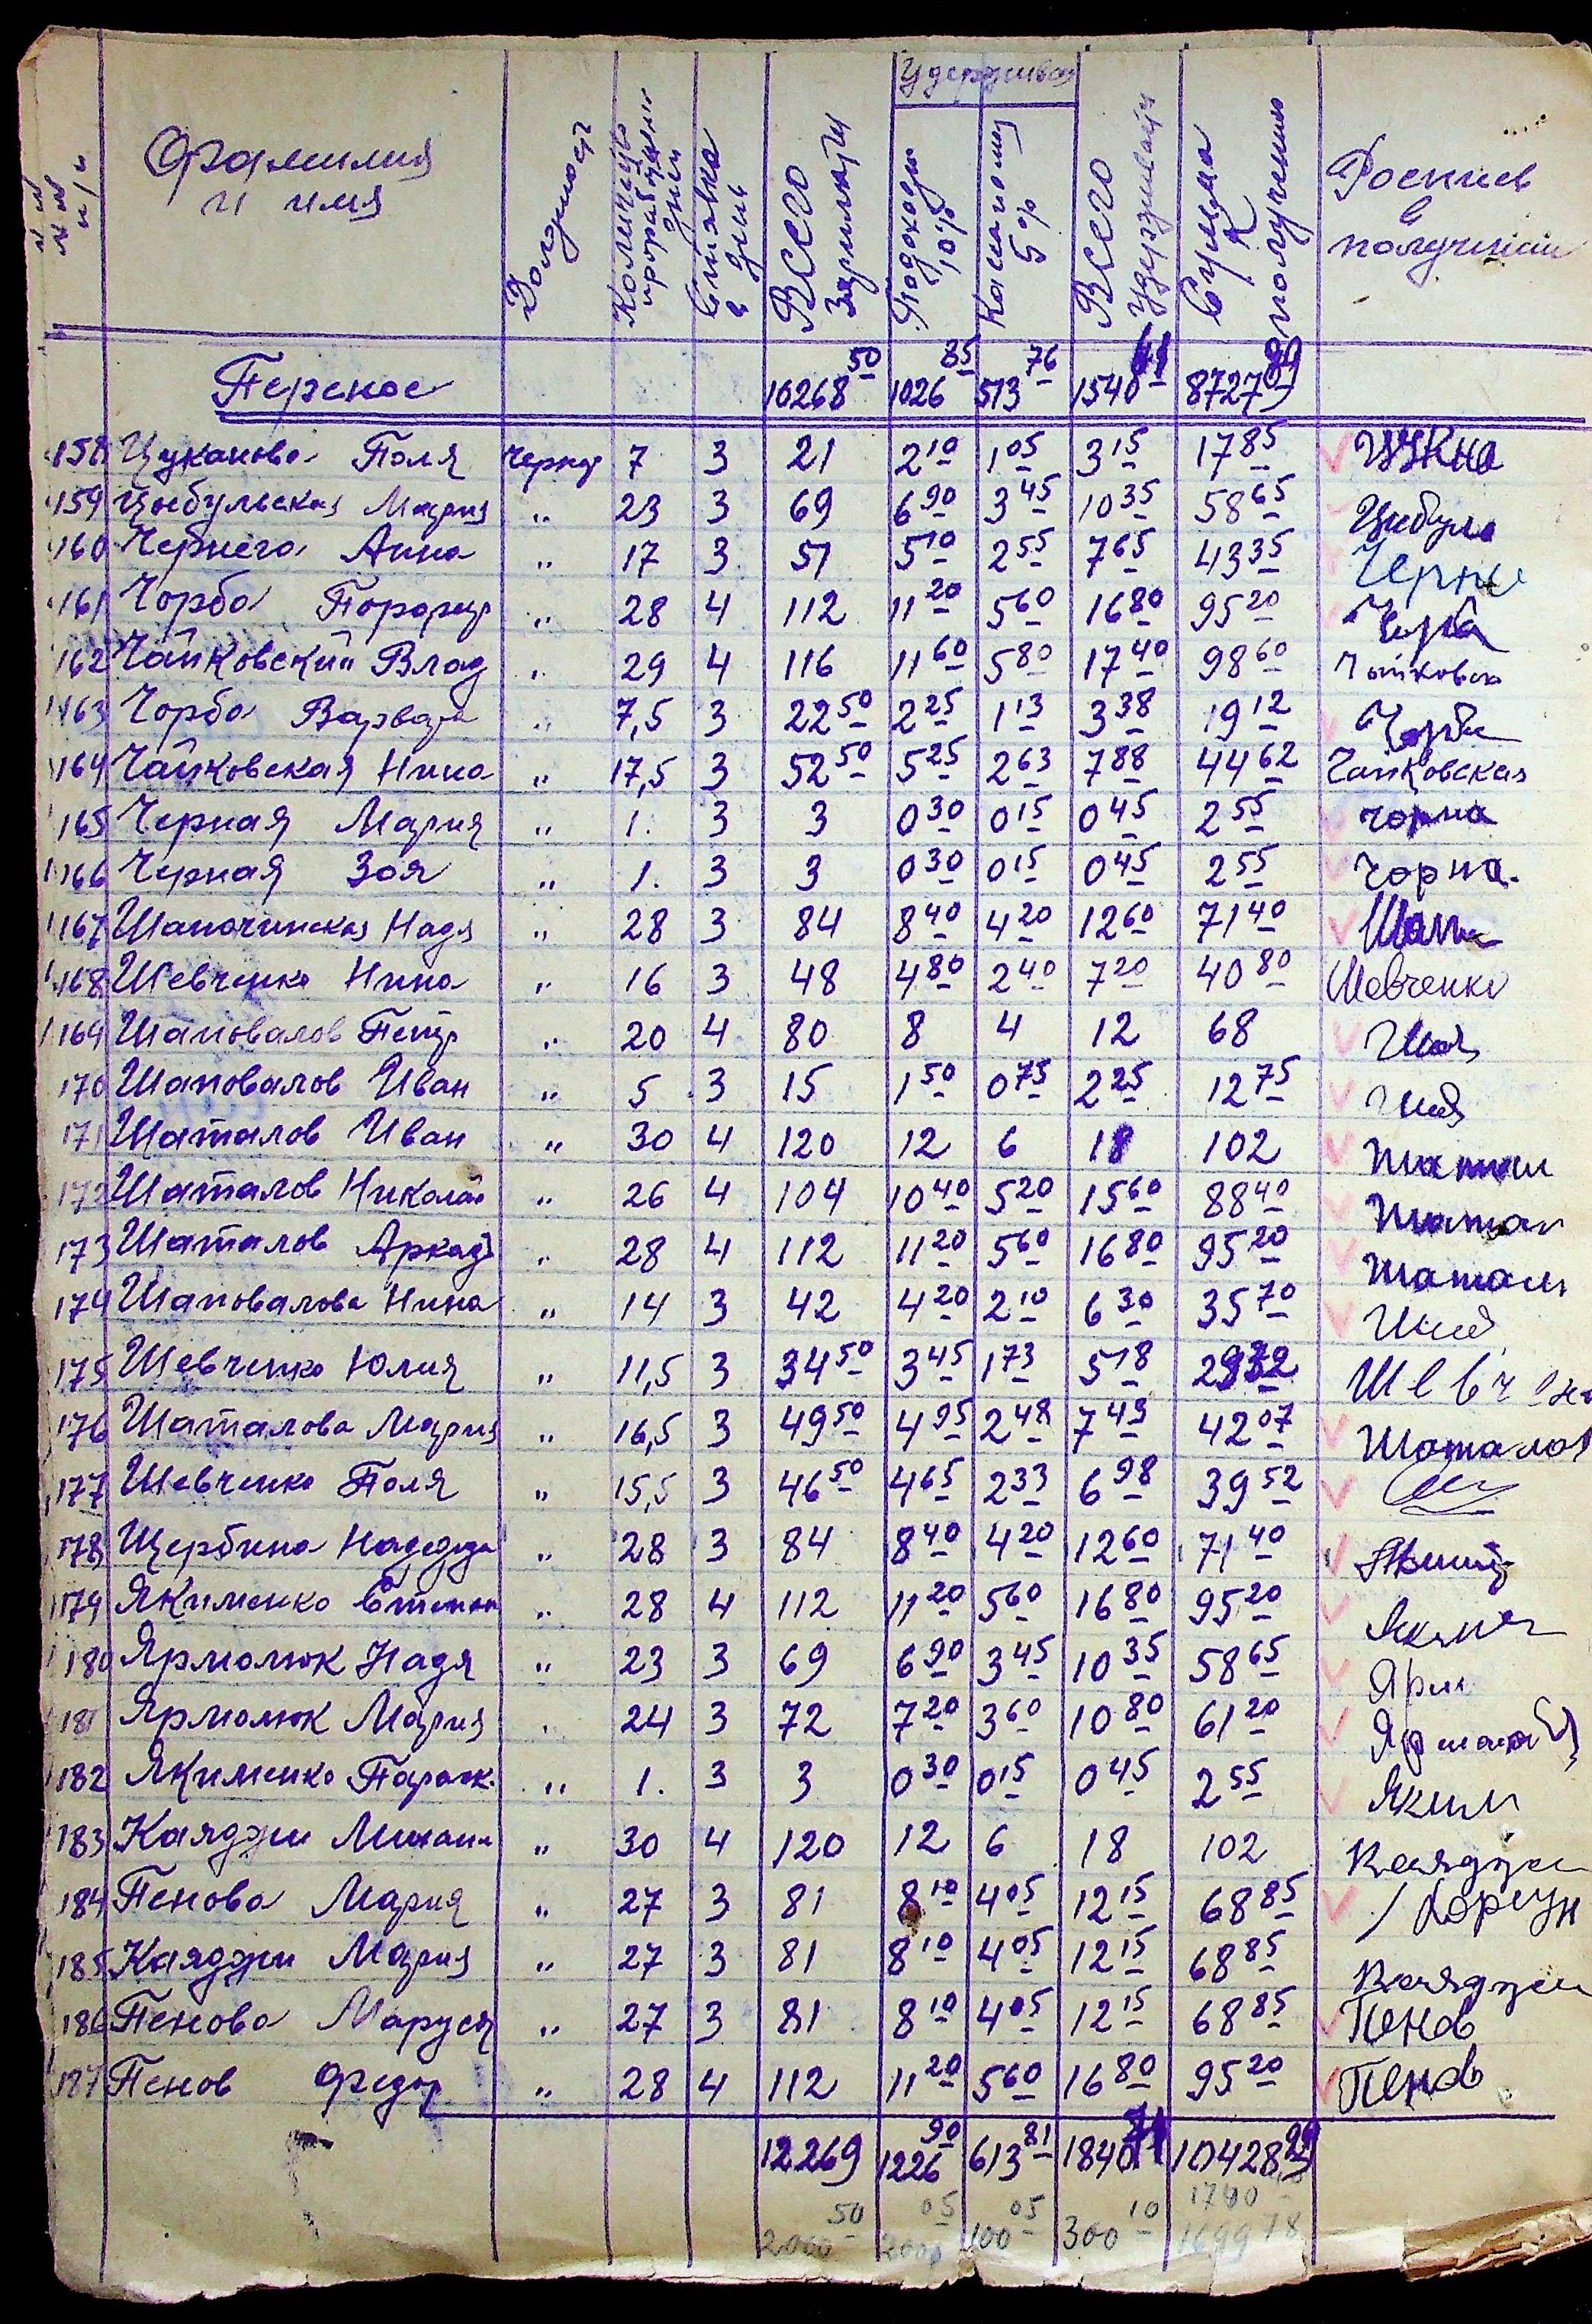 №№ п/п Фамилия и имя Должност Количество проработ. дней Ставка в день Всего Удерживал Подоходн 10% 5% Всего Сумма к получению Роспись в получении
Перенос 10268 50 1026 85 513 76 1540 8727
158 Цуканова Поля Чернор 7 3 21 2 10 1 05 3 15 17 85
159 Цыбульская Мария " 23 3 69 6 90 3 45 10 35 58 65 Цибуль
160 Чернега Анна " 17 3 51 5 10 2 55 7 65 43 35 Черне
161 Чорба " 28 4 112 11 20 5 60 16 80 95 20 Чорба
162 Чайковский Влад " 29 4 116 11 60 5 80 17 40 98 60
163 Чорба Варвара " 7,5 3 22 50 2 25 1 13 3 38 19 12 Чорба
164 Чайковская Нина " 17,5 3 52 50 5 25 2 63 7 88 44 62 Чайковская
165 Черная Мария " 1. 3 3 0 30 0 15 0 45 2 55 чорна
166 Черная Зоя " 1. 3 3 0 30 0 15 0 45 2 55 чорна.
167 Шапочинская Надя " 28 3 84 8 40 4 20 12 60 71 40 Шапи
168 Шевченко Нина " 16 3 48 4 80 2 40 7 20 40 80 Шевченко
169 Шаповалов Петр " 20 4 80 8 4 12 68
170 Шаповалов Иван " 5 3 15 1 50 0 75 2 25 12 75
171 Шаталов Иван " 30 4 120 12 6 18 102
172 Шаталов Николай " 26 4 104 10 40 5 20 15 60 88 40 Шатал
173 Шаталов Аркад " 28 4 112 11 20 5 60 16 80 95 20 Шатал
174 Шаповалова Нина " 14 3 42 4 20 2 10 6 30 35 70
175 Шевченко Юлия " 11,5 3 34 50 3 45 1 73 5 18 29 32 Шевч
176 Шаталова Мария " 16,5 3 49 50 4 95 2 48 7 43 42 07 Шаталов
177 Шевченко Поля " 15,5 3 46 50 4 65 2 33 6 98 39 52
178 Щербина Надежда " 28 3 84 8 40 4 20 12 60 71 40
179 Якименко Степан " 28 4 112 11 20 5 60 16 80 95 20 Якимен
180 Ярмолюк Надя " 23 3 69 6 90 3 45 10 35 58 65 Ярм
181 Ярмолюк Мария " 24 3 72 7 20 3 60 10 80 61 20
182 Якименко Параск. " 1. 3 3 0 30 0 15 0 45 2 55 Яким
183 Каяджи Михаил " 30 4 120 12 6 18 102 Каяджи
184 Пенова Мария " 27 3 81 8 10 4 05 12 15 68 85 / Корсун
185 Каяджи Мария " 27 3 81 8 10 4 05 12 15 68 85 Каяджи
186 Пенова Маруся " 27 3 81 8 10 4 05 12 15 68 85 Пенов
187 Пенов Федор " 28 4 112 11 20 5 60 16 80 95 20 Пенов
12269 1226 90 613 81 1840 10428
2000 50 200 05 100 05 300 10 1700 1699 78